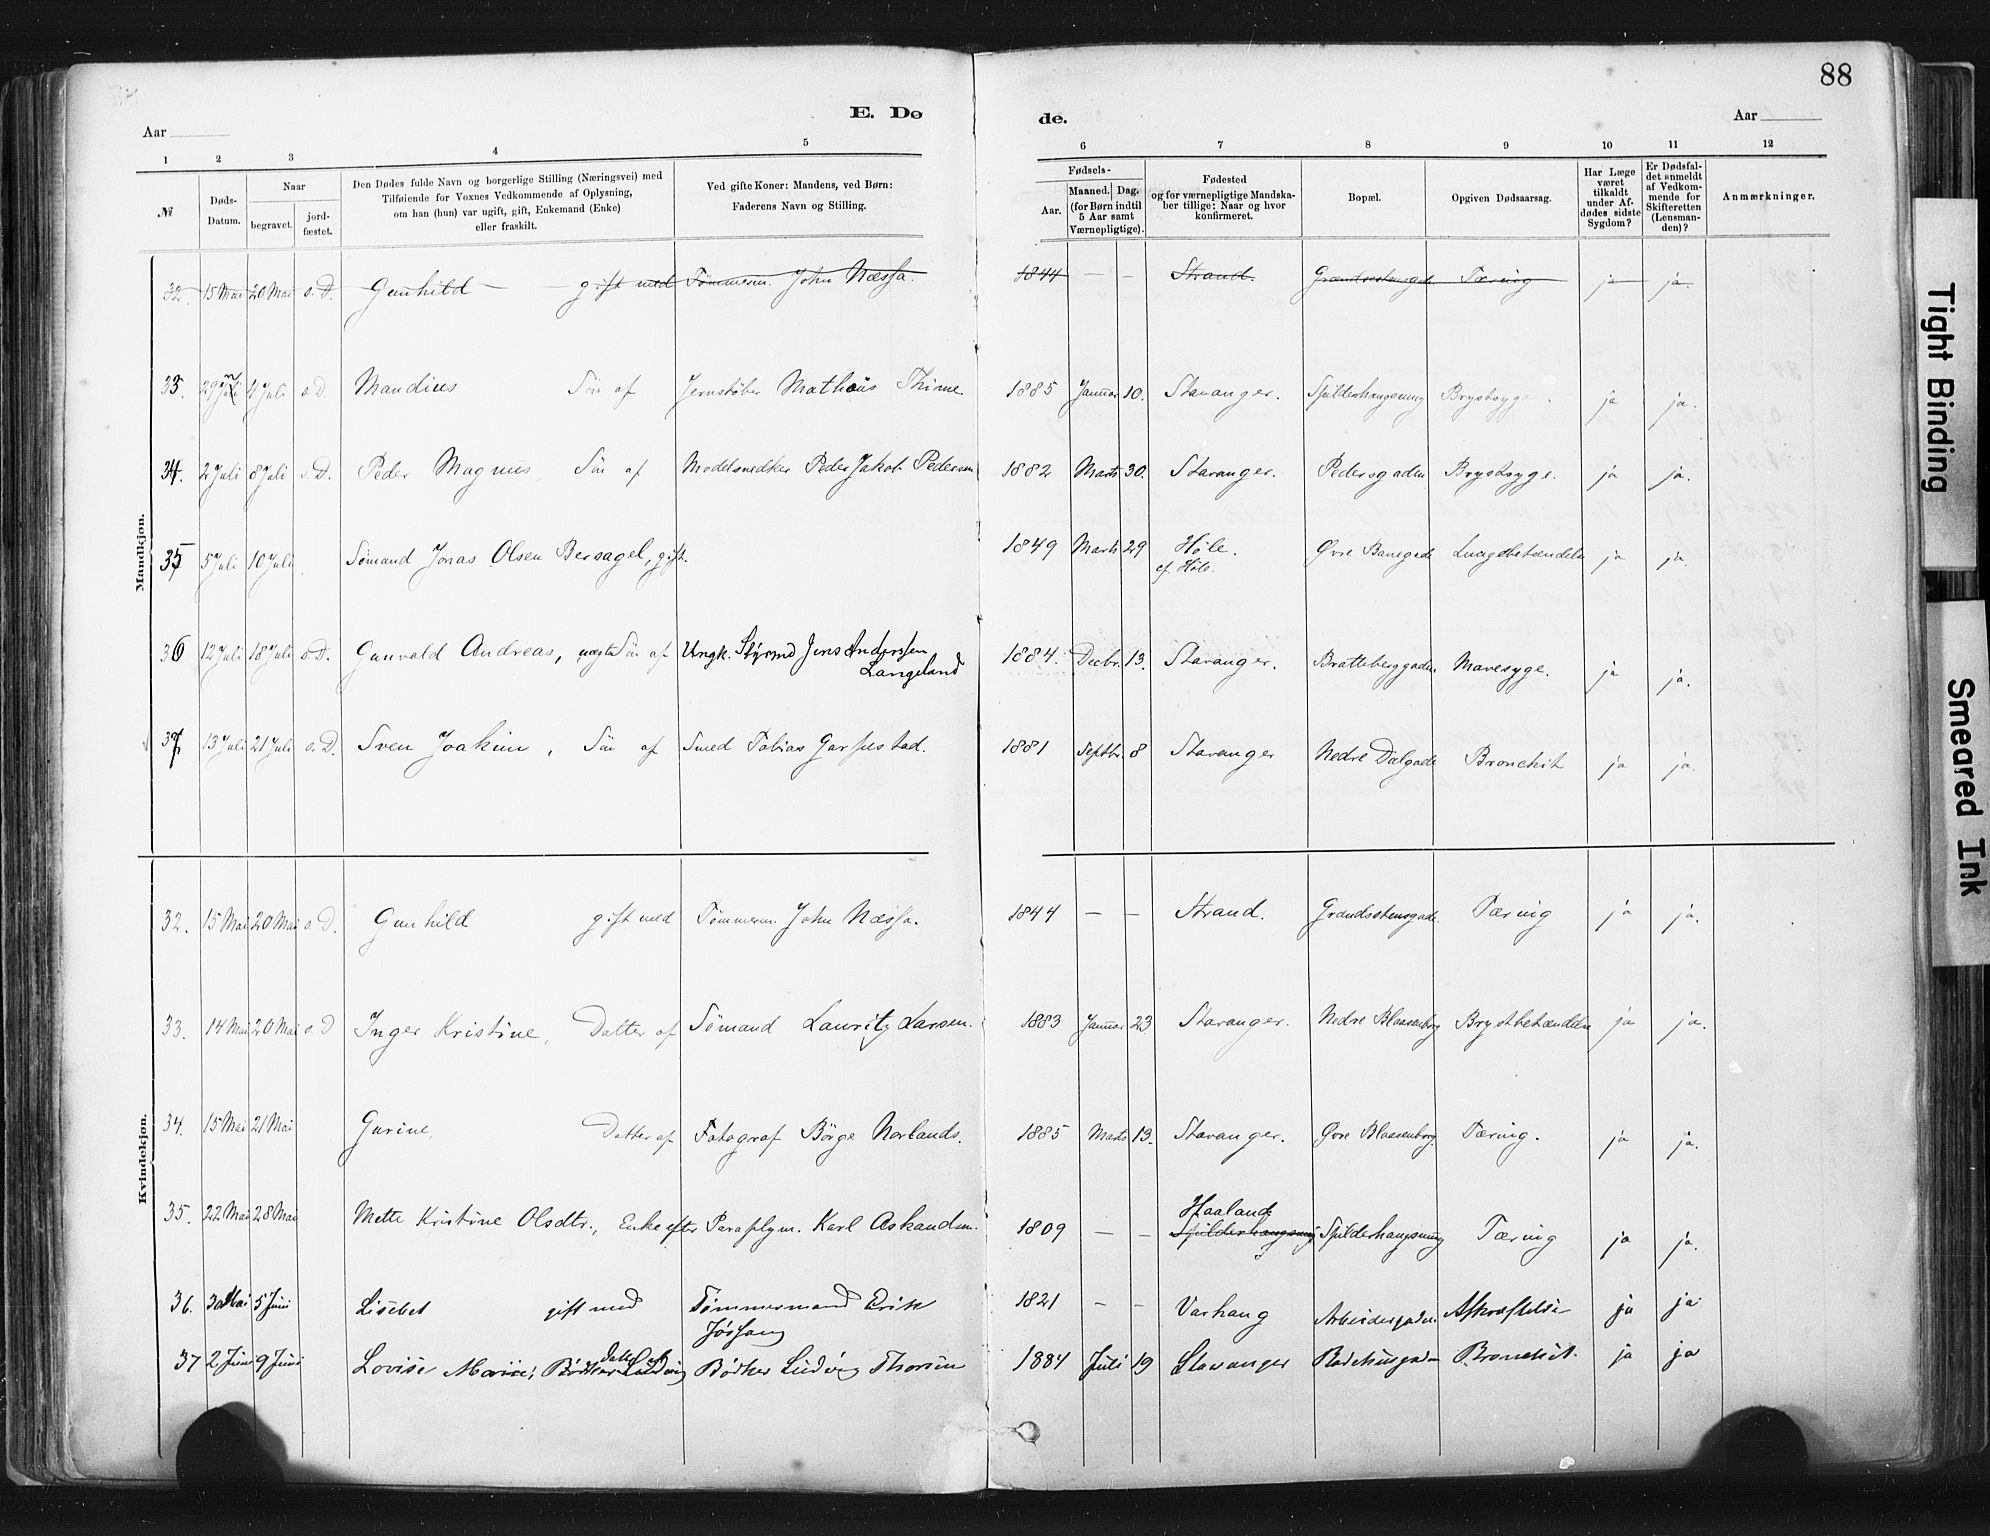 88
E. Dø de.
Aar Aar
1 2 3 4 5 6 7 8 9 10 11 12
№
Døds-Datum.
Naar
begravet.
jord-fæstet.
Den Dødes fulde Navn og borgerlige Stilling (Næringsvei) med
Tilføiende for Voxnes Vedkommende af Oplysning,
om han (hun) var ugift, gift, Enkemand (Enke)
eller fraskilt.
Ved gifte Koner: Mandens, ved Børn:
Faderens Navn og Stilling.
Fødsels-
Aar.
Maaned. Dag.
(for Børn indtil
5 Aar samt
Værnepligtige).
Fødested
og for værnepligtige Mandska-
ber tillige: Naar og hvor
konfirmeret.
Bopæl.
Opgiven Dødsaarsag.
Har Læge
været
tilkaldt
under Af-
dødes sidste
Sygdom?
Er Dødsfal-
det anmeldt
af Vedkom-
mende for
Skifteretten
(Lensman-
den)?
Anmærkninger.
Mandkjøn.
32. 15 Mai 20 Mai s. D. Gunhild gift med Tømmerm. John Næssa. 1844 — — Strand. Tæring ja ja.
33. 29 4 Juli s. D. Mandius Søn af Jernstøber Mathæus Thime 1885 Januar 10. Stavanger. Spilderhaugsvig Brystsyge. ja ja.
34. 2 Juli 8 Juli s. D. Peder Magnus, Søn af Modelsnedker Peder Jakob Pedersen 1882 Marts 30. Stavanger. Pedersgaden Brystsyge. ja ja.
35 5 Juli 10 Juli Sømand Jonas Olsen Bersagel, gift. 1849 Marts 29 Høle. Øvre Banegade Lungebetændelse ja ja.
cf. Høle.
36 12 Juli 18 Juli s. D. Gunvald Andreas, uægte Søn af Ungk. Styrmd Jens Anderssen 1884. Decbr. 13. Stavanger. Bratteberggaden Mavesyge. ja ja.
Langeland
37 13 Juli 21 Juli s. D. Sven Joakim, Søn af Smed Tobias Garpestad. 1881 Septbr. 8 Stavanger Nedre Dalgade Bronchit ja ja.
Kvindekjøn.
32. 15 Mai 20 Mai s. D. Gunhild gift med Tømmerm. John Næssa. 1844 — — Strand. Grændsestensgade. Tæring ja ja.
33. 14 Mai 20 Mai s. D Inger Kristine, Datter af Sømand Lauritz Larsen. 1883 Januar 23 Stavanger. Nedre Blaasenborg Brystbetændelse ja ja.
34. 15 Mai 21 Mai Gurine, Datter af Fotograf Börge Norlands. 1885 Marts 13. Stavanger. Øvre Blaasenborg. Tæring. ja ja.
35. 22 Mai 28 Mai Mette Kristine Olsdtr., Enke efter Paraplym. Karl Askandsen. 1809 — — Haaland Spilderhaugsvig Spilderhaugsvig Tæring ja ja.
36. 30 Mai 5 Juni Lisebet gift med Tømmermand Erik 1821 — — Varhaug Arbeidergaden. Afkræftelse ja ja.
Jøssang
37 2 Juni 9 Juni Lovise Marie, Bødker Ludvig Datter af Bødker Ludvig Thorsen 1884 Juli 19 Stavanger Bronchit. ja ja
Tight Binding
Smeared Ink